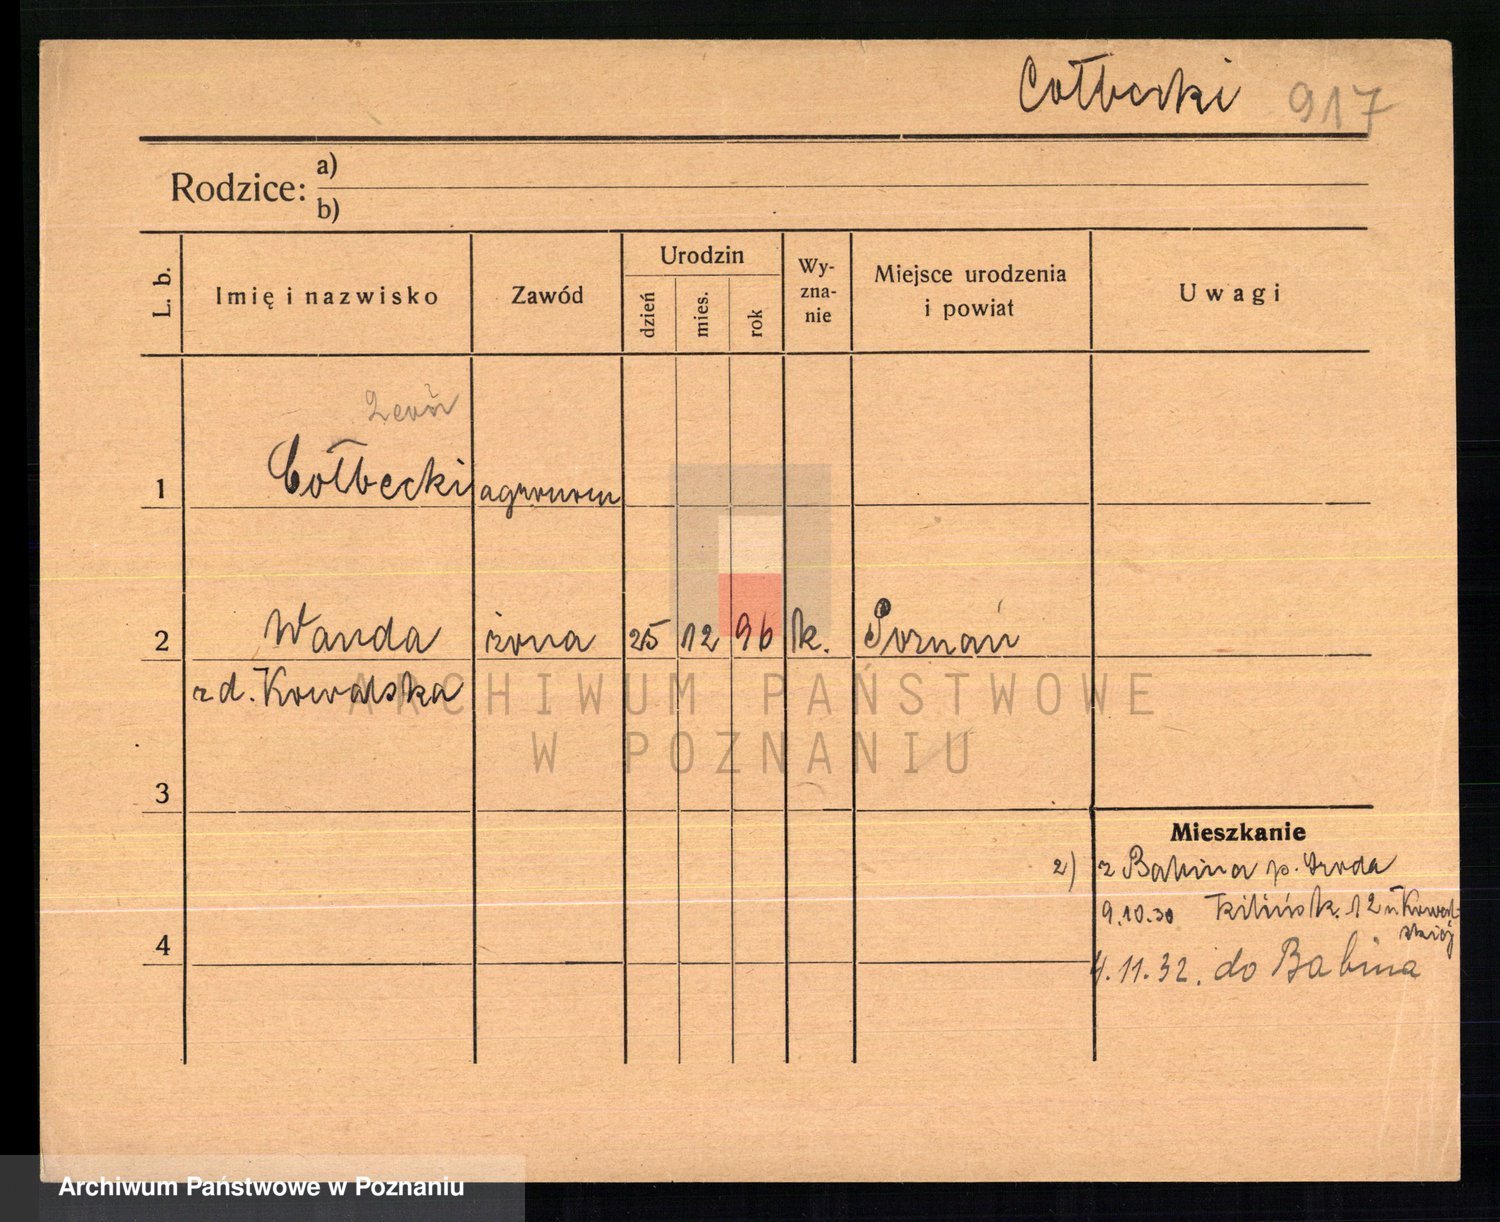 Cołbecki 917
Rodzice: a)
b)
L. b.
Imię i nazwisko
Zawód
Urodzin
dzień
mies.
rok
Wy-
zna-
nie
Miejsce urodzenia
i powiat
Uwagi
1 Cołbecki agronom
2 Wanda żona 25 12 96 k. Poznań
zd. Kowalska
3
Mieszkanie
2) z Babina p. Środa
9.10.30 Kilińsk. 12 u Kowal-
skiej
4
4.11.32. do Babina
ARCHIWUM PAŃSTWOWE
W POZNANIU
Archiwum Państwowe w Poznaniu